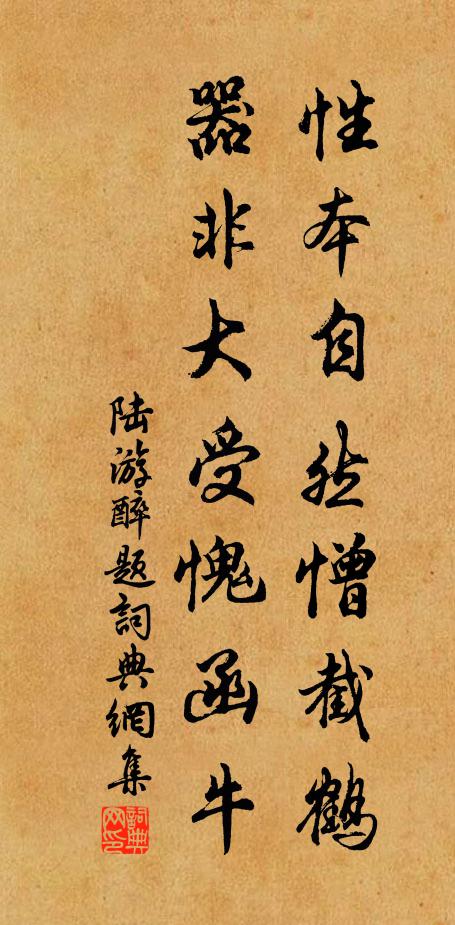 性本自然憎截鹤
器非大受愧函牛
陆游醉题詞典網集
詞典网印